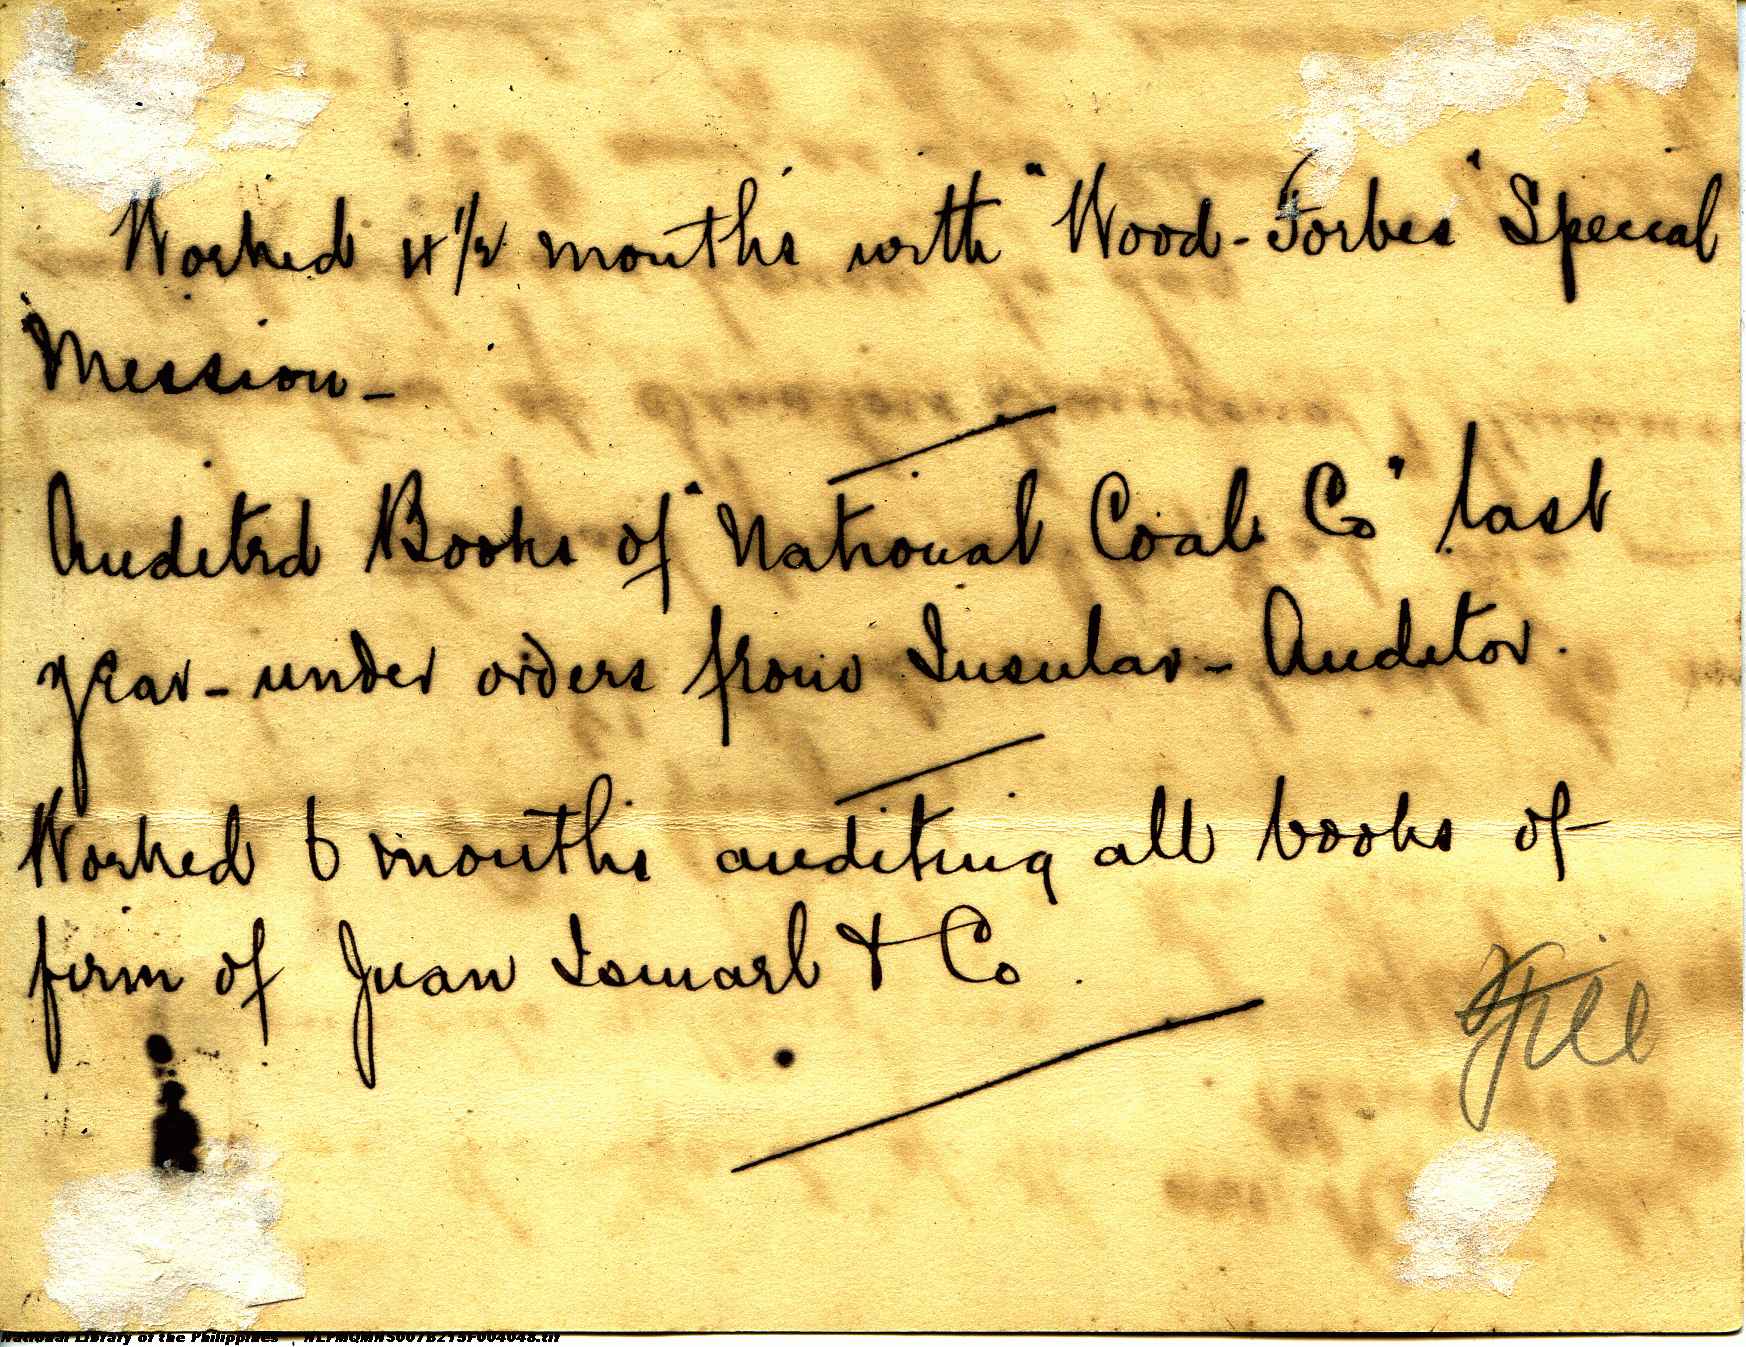 Worked 4 1/2 months with "Wood-Forbes" Special
Mission-
Audited Books of "National Coal Co" last
year - under orders from Insular - Auditor.
Worked 6 months auditing all books of
firm of Juan Ismarl & Co.
File
National Library of the Philippines